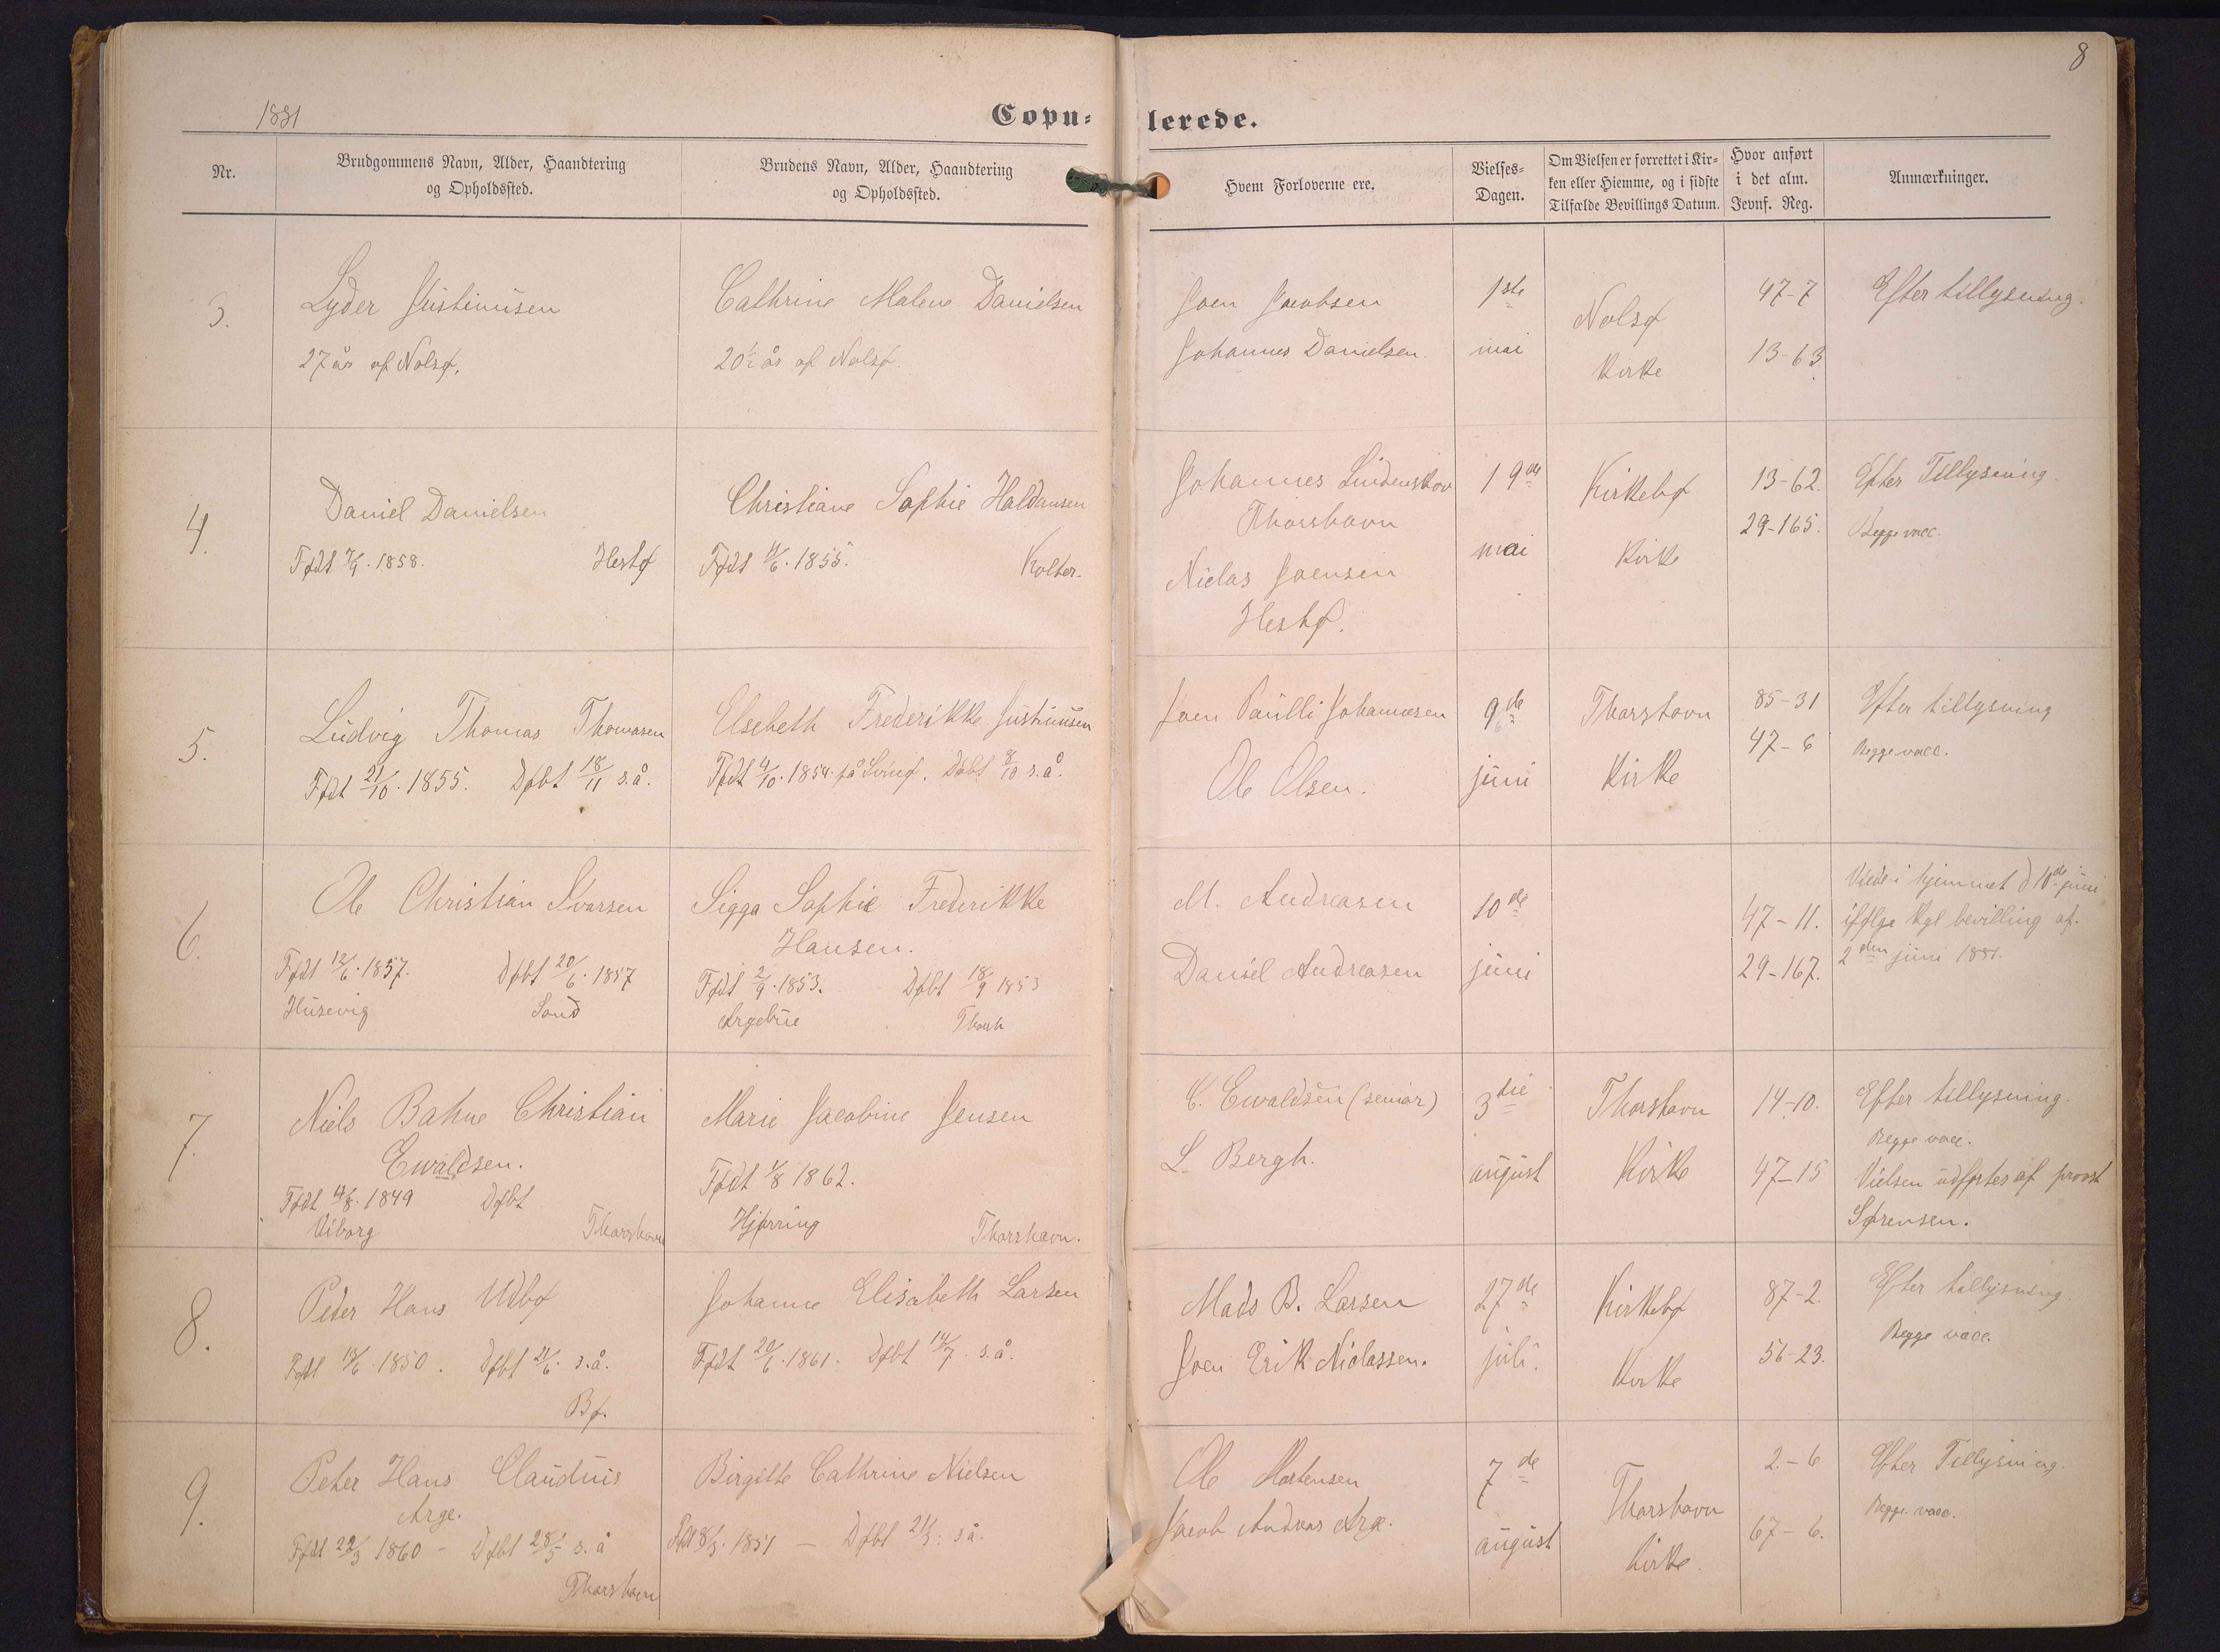 8
1881
Copu-
lerede.
Nr.
Brudgommens Navn, Alder, Haandtering
og Opholdssted.
Brudens Navn, Alder, Haandtering
og Opholdssted.
Hvem Forloverne ere.
Vielses-
Dagen.
Om Vielsen er forrettet i Kir-
ken eller Hiemme, og i sidste
Tilfælde Bevillings Datum.
Hvor anført
i det alm.
Jevnf. Reg.
Anmærkninger.
3.
Lyder Justinusen
27 år af Nolsø.
Cathrine Malene Danielsen
20½ år af Nolsø.
Joen Jacobsen
Johannes Danielsen.
1ste
mai
Nolsø
Kirke
47-7
13-63.
Efter tillysning.
4.
Daniel Danielsen
Født 7/9. 1858. Hestø
Christiane Sophie Haldansen
Født 11/6. 1855. Kolter.
Johannes Lindenskov
Thorshavn
Niclas Joensen
Hestø.
19de
mai
Kirkebø
Kirke
13-62.
29-165.
Efter Tillysning.
Begge vacc.
5.
Ludvig Thomas Thomasen
Født 21/10. 1855. Døbt 18/11 s.å.
Elsebeth Frederikke Justinusen
Født 4/10. 1854 på Svinø. Døbt 8/10 s.å.
Joen Paulli Johannesen
Ole Olsen.
9de
juni
Thorshavn
Kirke
85-31
47-6
Efter tillysning
Begge vacc.
6.
Ole Christian Ivarsen
Født 12/6. 1857. Døbt 20/6. 1857
Husevig Sand
Sigga Sophie Frederikke
Hansen.
Født 2/9. 1853. Døbt 18/9 1853
Argebue Thorsh
M. Andreasen
Daniel Andreasen
10de
juni
47-11.
29-167.
Viede i hjemmet d 10de juni
ifølge Kgl bevilling af
2den juni 1881.
7.
Niels Bahne Christian
Ewaldsen.
Født 4/8. 1849 Døbt
Viborg Thorshavn
Marie Jacobine Jensen
Født 1/8 1862.
Hjørring Thorshavn.
C. Ewaldsen (senior)
L. Bergh.
3die
august
Thorshavn
Kirke
14-10.
47-15
Efter tillysning.
Begge vacc.
Vielsen udførtes af provst
Sørensen.
8.
Peder Hans Udbø
Født 13/6. 1850. Døbt 21/6. s.å.
Bø.
Johanne Elisabeth Larsen
Født 20/6. 1861. Døbt 14/7 s.å.
Mads B. Larsen
Joen Erik Niclassen.
27de
juli.
Kirkebø
Kirke
87-2.
56-23.
Efter tillysning.
Begge vacc.
9.
Peter Hans Claudius
Arge.
Født 22/3 1860 - Døbt 28/5 s.å
Thorshavn
Birgitte Cathrine Nielsen
Født 8/3. 1851 - Døbt 21/3. s å.
Ole Mortensen
Jacob Andreas Arge.
7de
august
Thorshavn
Kirke.
2.-6
67-6.
Efter Tillysning.
Begge vacc.